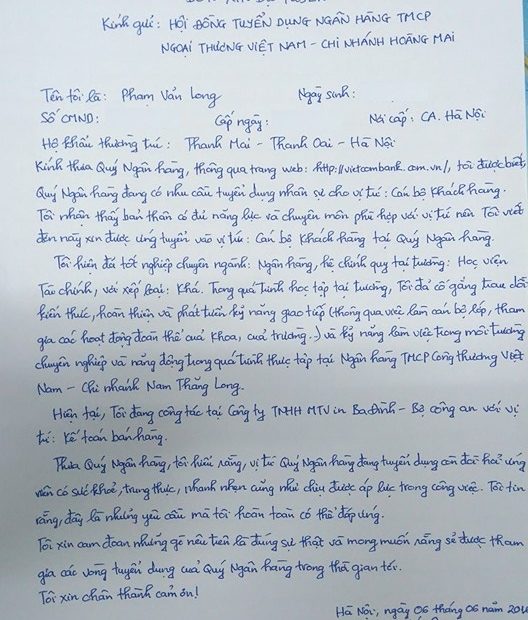 Kính gửi: HỘI ĐỒNG TUYỂN DỤNG NGÂN HÀNG TMCP
NGOẠI THƯƠNG VIỆT NAM - CHI NHÁNH HOÀNG MAI
Tên tôi là: Phạm Văn Long Ngày sinh:
Số CMND: Cấp ngày: Nơi cấp: CA. Hà Nội
Hộ khẩu thường trú: Thanh Mai - Thanh Oai - Hà Nội
Kính thưa Quý Ngân hàng, thông qua trang web: http://vietcombank.com.vn/, tôi được biết,
Quý Ngân hàng đang có nhu cầu tuyển dụng nhân sự cho vị trí: Cán bộ Khách hàng.
Tôi nhận thấy bản thân có đủ năng lực và chuyên môn phù hợp với vị trí nên Tôi viết
đơn này xin được ứng tuyển vào vị trí: Cán bộ Khách hàng tại Quý Ngân hàng.
Tôi hiện đã tốt nghiệp chuyên ngành: Ngân hàng, hệ chính quy tại trường: Học viện
Tài chính, với xếp loại: Khá. Trong quá trình học tập tại trường, Tôi đã cố gắng trau dồi
kiến thức, hoàn thiện và phát triển kỹ năng giao tiếp (thông qua việc làm cán bộ lớp, tham
gia các hoạt động đoàn thể của khoa, của trường..) và kỹ năng làm việc trong môi trường
chuyên nghiệp và năng động trong quá trình thực tập tại Ngân hàng TMCP Công thương Việt
Nam - Chi nhánh Nam Thăng Long.
Hiện tại, Tôi đang công tác tại Công ty TNHH MTV in Ba Đình - Bộ công an với vị
trí: Kế toán bán hàng.
Thưa Quý Ngân hàng, tôi hiểu rằng, vị trí Quý Ngân hàng đang tuyển dụng còn đòi hỏi ứng
viên có sức khoẻ, trung thực, nhanh nhẹn cũng như chịu được áp lực trong công việc. Tôi tin
rằng, đây là những yêu cầu mà tôi hoàn toàn có thể đáp ứng.
Tôi xin cam đoan những gì nêu trên là đúng sự thật và mong muốn rằng sẽ được tham
gia các vòng tuyển dụng của Quý Ngân hàng trong thời gian tới.
Tôi xin chân thành cảm ơn!
Hà Nội, ngày 06 tháng 06 năm